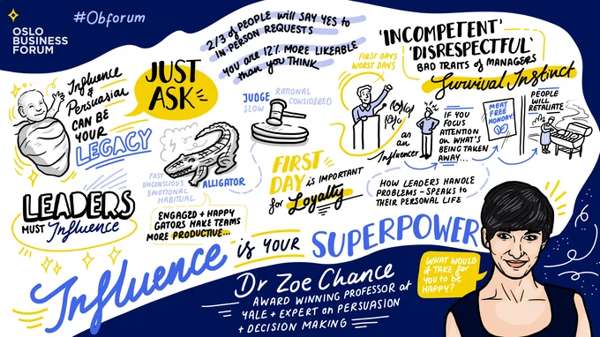 OSLO
BUSINESS
FORUM
#Obforum
Influence
& Persuasian
CAN BE
YOUR
LEGACY
LEADERS
MUST Influence
JUST
ASK
2/3 OF PEOPLE will SAY YES to
IN PERSON REQUESTS
YOU ARE 12% MORE LIKEABLE
than YOU THINK
JUDGE
SLOW
RATIONAL
CONSIDERED
FAST
UNCONSCIOUS
EMOTIONAL
HABITUAL
ALLIGATOR
ENGAGED + HAPPY
GATORS MAKE TEAMS
MORE PRODUCTIVE...
FIRST
DAY is IMPORTANT
for Loyalty
FIRST DAYS
WORST DAYS
as
an
Influencer
'INCOMPETENT'
'DISRESPECTFUL'
BAD TRAITS OF MANAGERS
Survival Instinct
IF YOU
FOCUS
ATTENTION
ON WHAT'S
BEING TAKEN
AWAY...
MEAT
FREE
MONDAY
PEOPLE
WILL
RETALIATE
HOW LEADERS HANDLE
PROBLEMS - SPEAKS to
THEIR PERSONAL LIFE
Influence is YOUR SUPERPOWER
Dr Zoe Chance
AWARD WINNING PROFESSOR at
YALE + EXPERT on PERSUASION
+ DECISION MAKING
WHAT WOULD
it TAKE for
YOU to BE
HAPPY?